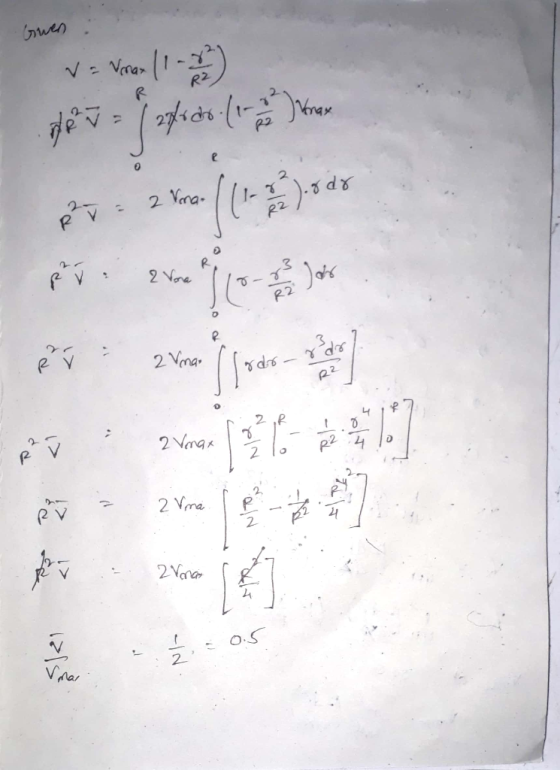 Given :
V = Vmax (1 - r²/R²)
πR² V̄ = ∫₀ᴿ 2πr dr · (1 - r²/R²) Vmax
R² V̄ = 2 Vmax ∫₀ᴿ (1 - r²/R²) · r dr
R² V̄ = 2 Vma ∫₀ᴿ (r - r³/R²) dr
R² V̄ = 2 Vmax ∫₀ᴿ [r dr - r³dr/R²]
R² V̄ = 2 Vmax [r²/2 |₀ᴿ - 1/R² · r⁴/4 |₀ᴿ]
R² V̄ = 2 Vma [R²/2 - 1/R² · R⁴²/4]
R² V̄ = 2 Vmax [R²/4]
V̄/Vmax = 1/2 = 0.5